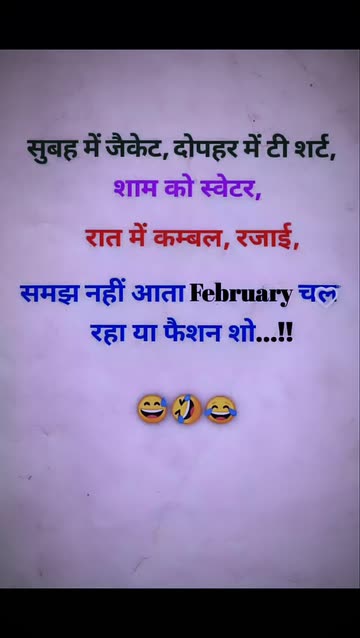 सुबह में जैकेट, दोपहर में टी शर्ट,
शाम को स्वेटर,
रात में कम्बल, रजाई,
समझ नहीं आता February चल
रहा या फैशन शो...!!
😅🤣😂